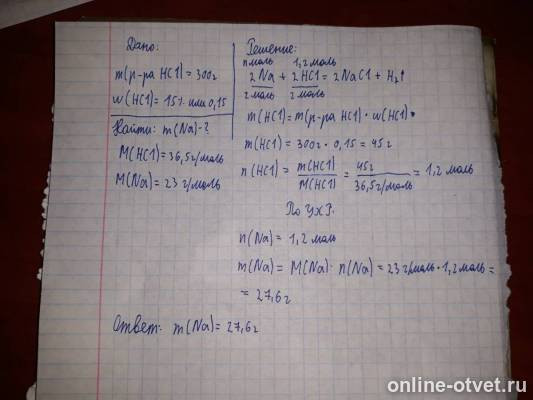 Дано:
m(р-ра HCl) = 300г
w(HCl) = 15% или 0,15
Найти: m(Na)-?
M(HCl) = 36,5г/моль
M(Na) = 23 г/моль
Решение:
n моль 1,2 моль
2Na + 2HCl = 2NaCl + H₂↑
2 моль 2 моль
m(HCl) = m(р-ра HCl) · w(HCl)
m(HCl) = 300г · 0,15 = 45г
n(HCl) = m(HCl)/M(HCl) = 45г/36,5г/моль = 1,2 моль
По УХР.
n(Na) = 1,2 моль
m(Na) = M(Na) · n(Na) = 23 г/моль · 1,2 моль =
= 27,6г
Ответ: m(Na) = 27,6г
online-otvet.ru